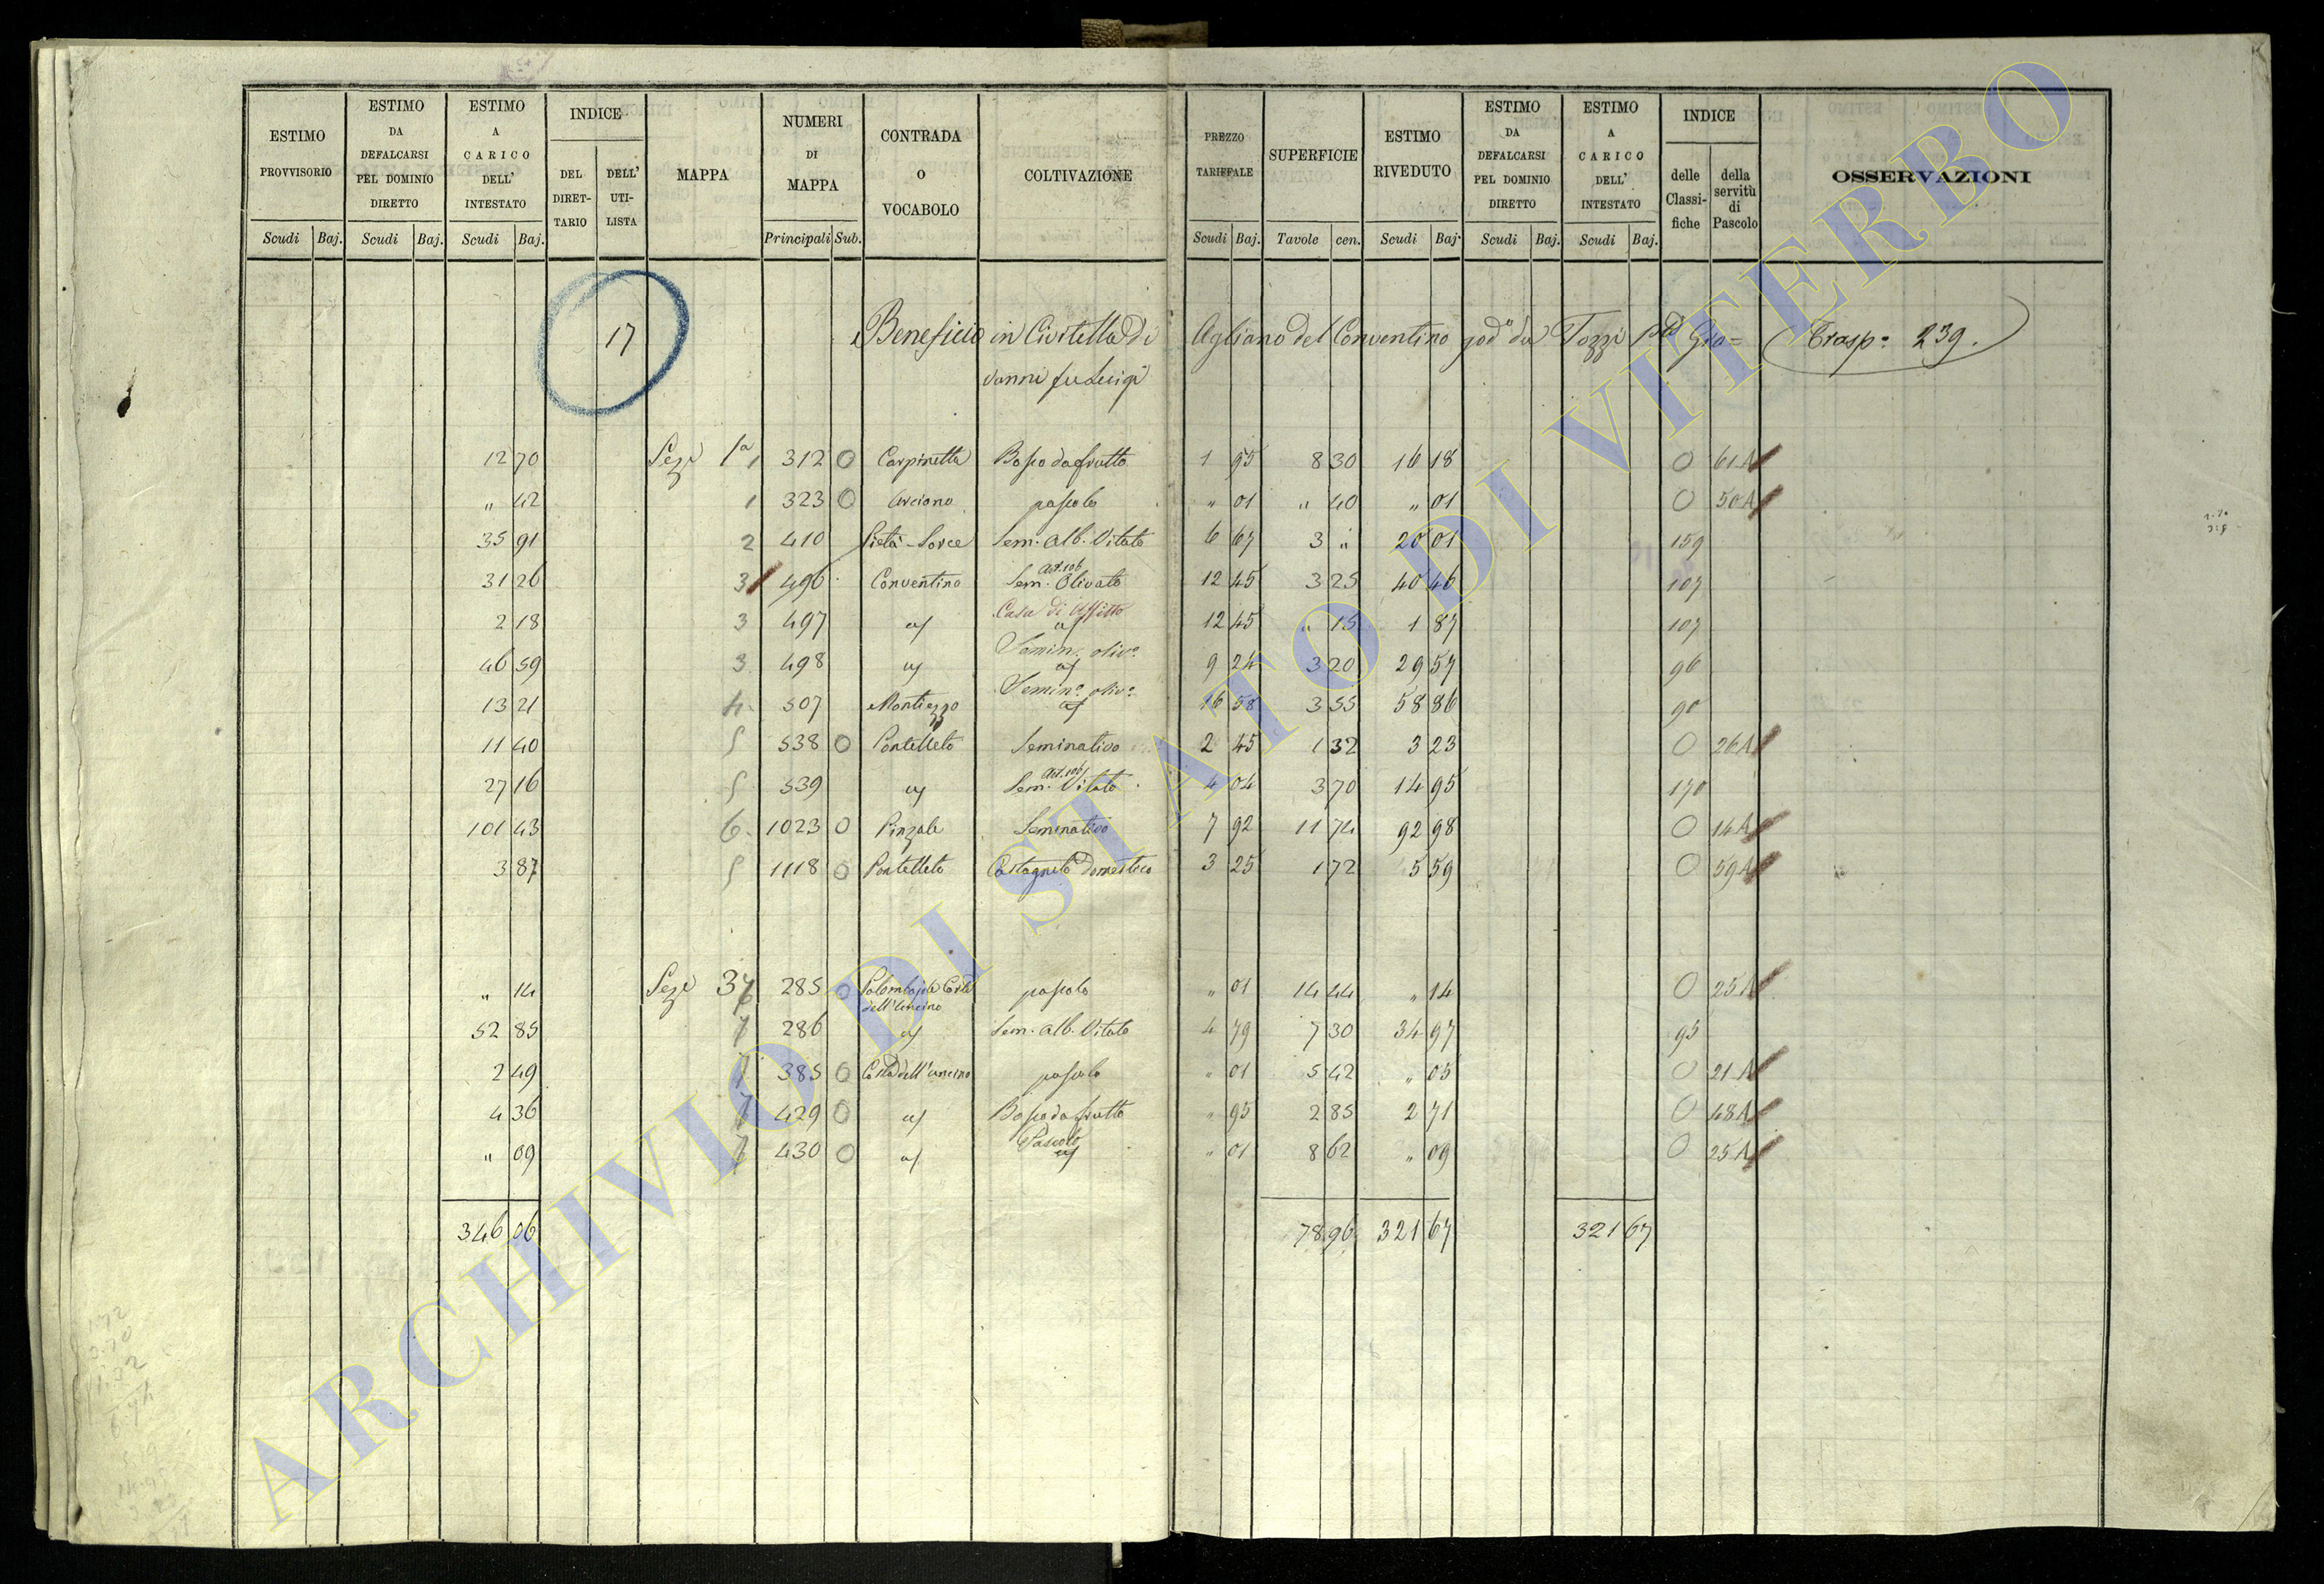 ESTIMO PROVVISORIO Scudi Baj.
ESTIMO DA DEFALCARSI PEL DOMINIO DIRETTO Scudi Baj.
ESTIMO A CARICO DELL' INTESTATO Scudi Baj.
INDICE DEL DIRET- TARIO DELL' UTI- LISTA
MAPPA
NUMERI DI MAPPA Principali Sub.
CONTRADA O VOCABOLO
COLTIVAZIONE
PREZZO TARIFFALE Scudi Baj.
SUPERFICIE Tavole cen.
ESTIMO RIVEDUTO Scudi Baj.
ESTIMO DA DEFALCARSI PEL DOMINIO DIRETTO Scudi Baj.
ESTIMO A CARICO DELL' INTESTATO Scudi Baj.
INDICE delle Classi- fiche della servitù di Pascolo
OSSERVAZIONI
17 Beneficio in Civitella di Agliano del Conventino god° da Tozzi Gio= Trasp° 239.
vanni fu Luigi
12 70 Seze 1a 1 312 0 Carpinetta Bosco da frutto 1 95 8 30 16 18 0 61 A
" 42 1 323 0 Arciano pascolo " 01 " 40 " 01 0 50 A
35 91 2 410 Pietà-Sorce Sem. Alb. Vitato 6 67 3 " 20 01 159
31 26 3 496 Conventino Sem. Olivato Art. 106 12 45 3 25 40 46 107
2 18 3 497 a/ Casa di Affitto a/ 12 45 " 15 1 87 107
46 59 3 498 a/ Semin. oliv° a/ 9 24 3 20 29 57 96
13 21 4 507 Montiezzo Semin° oliv° a/ 16 58 3 55 58 86 90
11 40 5 538 0 Pontelleto Seminativo 2 45 1 32 3 23 0 26 A
27 16 5 539 a/ Sem. Vitato Art. 106 4 04 3 70 14 95 170
101 43 6 1023 0 Pinzale Seminativo 7 92 11 74 92 98 0 14 A
3 87 5 1118 0 Pontelleto Castagneto domestico 3 25 1 72 5 59 0 59 A
" 14 Sezе 3 7 285 0 Palombajo e Costa dell'Ancino pascolo " 01 14 44 " 14 0 25 A
52 85 7 286 a/ Sem. Alb. Vitato 4 79 7 30 34 97 95
2 49 7 385 0 Costa dell'ancino pascolo " 01 5 42 " 05 0 21 A
4 36 7 429 0 a/ Bosco da frutto " 95 2 85 2 71 0 48 A
" 09 7 430 0 a/ Pascolo a/ " 01 8 62 " 09 0 25 A
346 06 78 96 321 67 321 67
ARCHIVIO DI STATO DI VITERBO